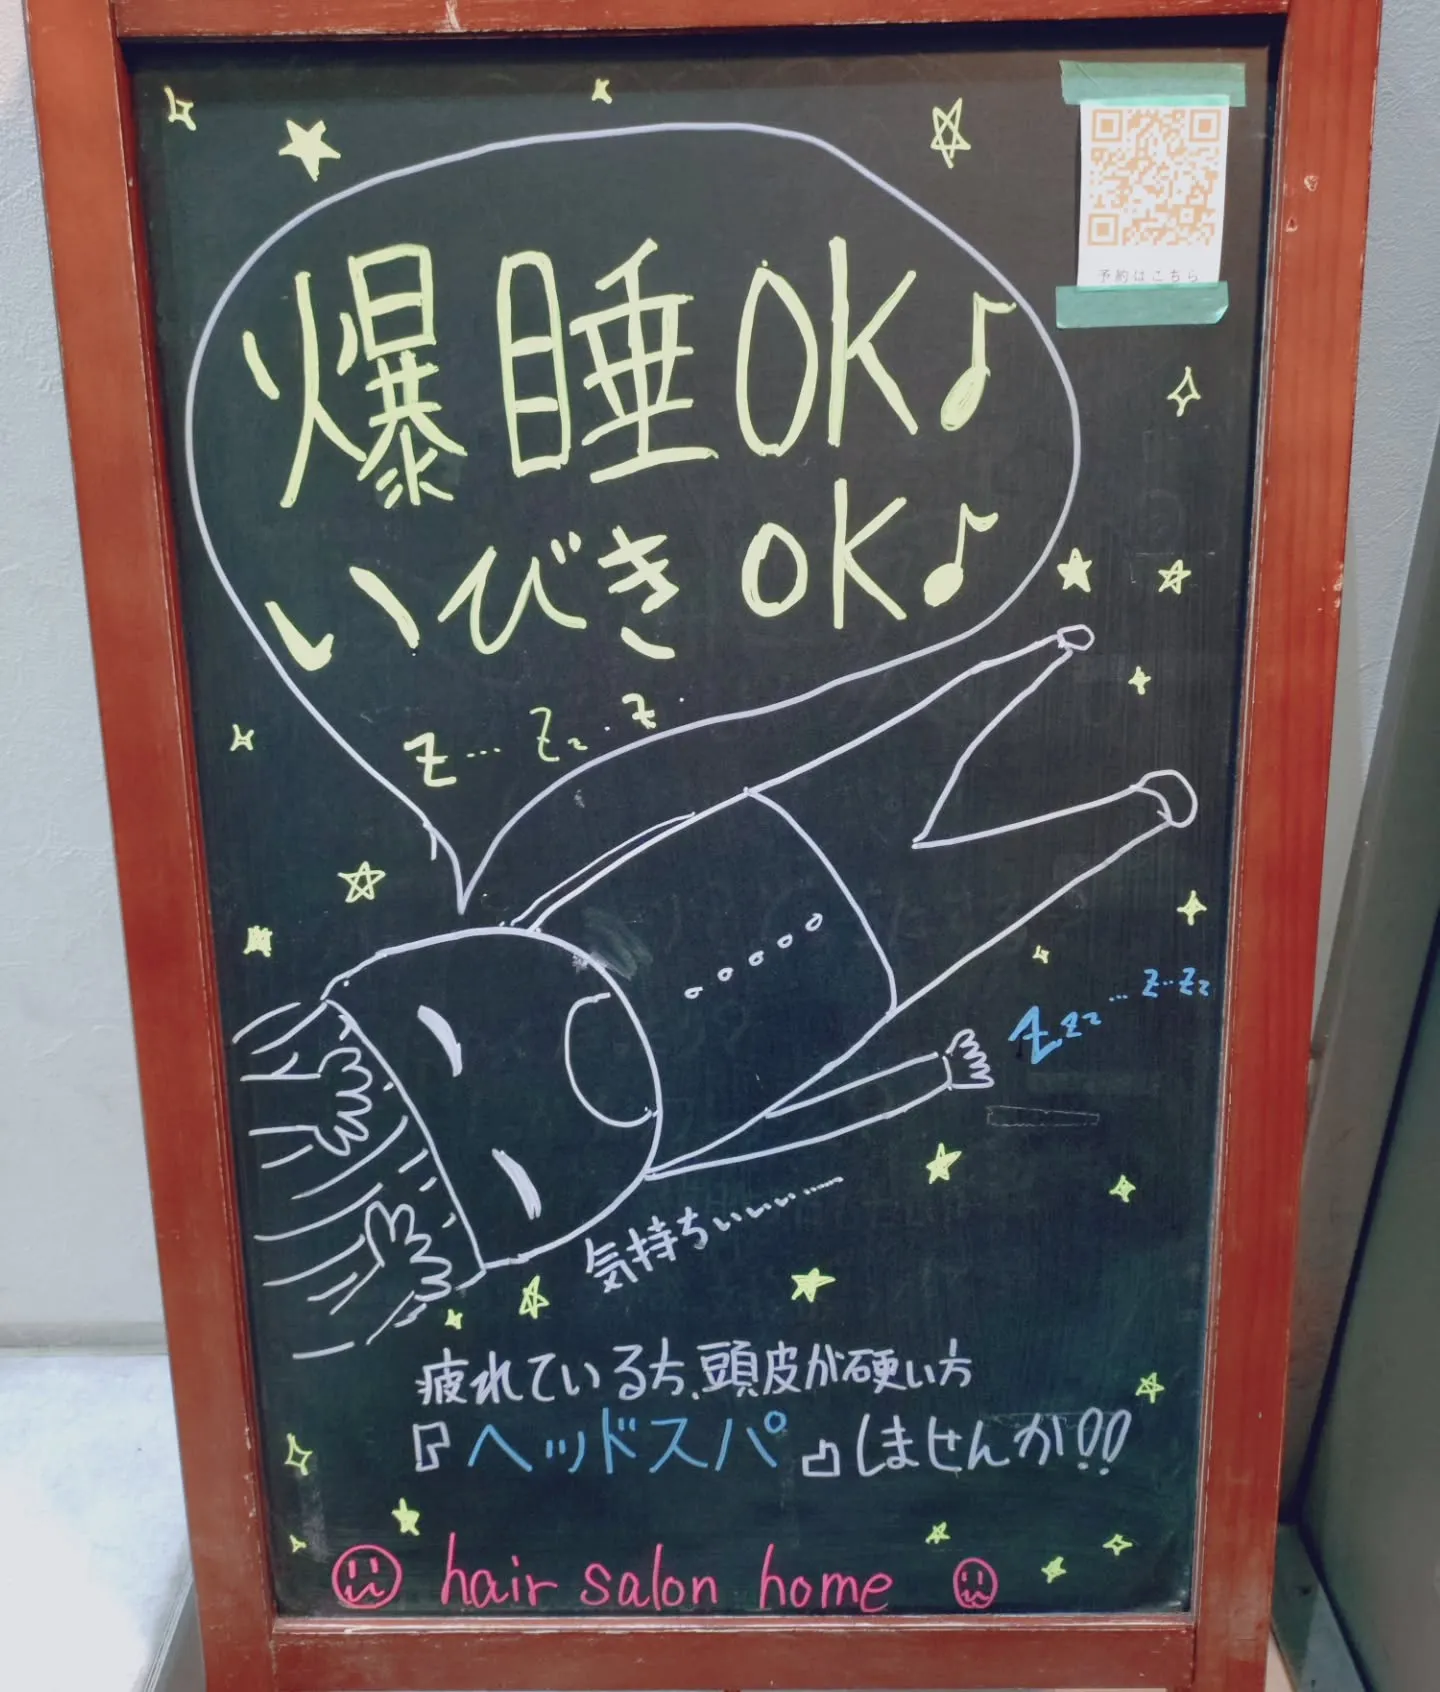 予約はこちら
爆睡OK♪
いびきOK♪
z…Zz..z.
Zzz…z..zz
気持ちぃぃぃ……
疲れている方、頭皮が硬い方
『ヘッドスパ』しませんか!!
hair salon home